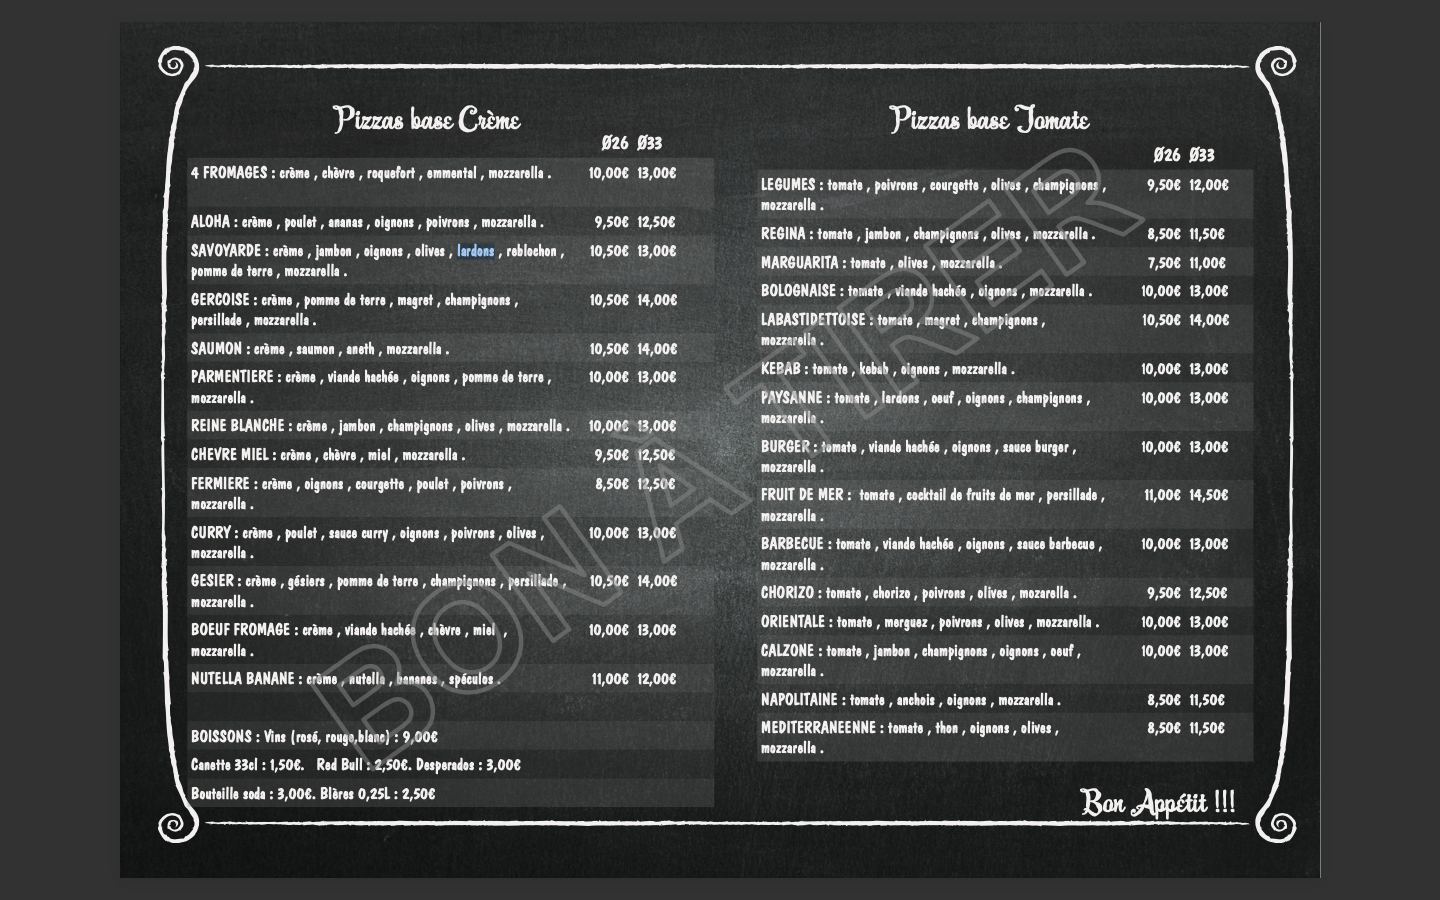 Pizzas base Crème
Ø26 Ø33
4 FROMAGES : crème , chèvre , roquefort , emmental , mozzarella . 10,00€ 13,00€
ALOHA : crème , poulet , ananas , oignons , poivrons , mozzarella . 9,50€ 12,50€
SAVOYARDE : crème , jambon , oignons , olives , lardons , reblochon , 10,50€ 13,00€
pomme de terre , mozzarella .
GERCOISE : crème , pomme de terre , magret , champignons , 10,50€ 14,00€
persillade , mozzarella .
SAUMON : crème , saumon , aneth , mozzarella . 10,50€ 14,00€
PARMENTIERE : crème , viande hachée , oignons , pomme de terre , 10,00€ 13,00€
mozzarella .
REINE BLANCHE : crème , jambon , champignons , olives , mozzarella . 10,00€ 13,00€
CHEVRE MIEL : crème , chèvre , miel , mozzarella . 9,50€ 12,50€
FERMIERE : crème , oignons , courgette , poulet , poivrons , 8,50€ 12,50€
mozzarella .
CURRY : crème , poulet , sauce curry , oignons , poivrons , olives , 10,00€ 13,00€
mozzarella .
GESIER : crème , gésiers , pomme de terre , champignons , persillade , 10,50€ 14,00€
mozzarella .
BOEUF FROMAGE : crème , viande hachée , chèvre , miel , 10,00€ 13,00€
mozzarella .
NUTELLA BANANE : crème , nutella , bananes , spéculos . 11,00€ 12,00€
BOISSONS : Vins (rosé, rouge,blanc) : 9,00€
Canette 33cl : 1,50€. Red Bull : 2,50€. Desperados : 3,00€
Bouteille soda : 3,00€. BIères 0,25L : 2,50€
Pizzas base Tomate
Ø26 Ø33
LEGUMES : tomate , poivrons , courgette , olives , champignons , 9,50€ 12,00€
mozzarella .
REGINA : tomate , jambon , champignons , olives , mozzarella . 8,50€ 11,50€
MARGUARITA : tomate , olives , mozzarella . 7,50€ 11,00€
BOLOGNAISE : tomate , viande hachée , oignons , mozzarella . 10,00€ 13,00€
LABASTIDETTOISE : tomate , magret , champignons , 10,50€ 14,00€
mozzarella .
KEBAB : tomate , kebab , oignons , mozzarella . 10,00€ 13,00€
PAYSANNE : tomate , lardons , oeuf , oignons , champignons , 10,00€ 13,00€
mozzarella .
BURGER : tomate , viande hachée , oignons , sauce burger , 10,00€ 13,00€
mozzarella .
FRUIT DE MER : tomate , cocktail de fruits de mer , persillade , 11,00€ 14,50€
mozzarella .
BARBECUE : tomate , viande hachée , oignons , sauce barbecue , 10,00€ 13,00€
mozzarella .
CHORIZO : tomate , chorizo , poivrons , olives , mozarella . 9,50€ 12,50€
ORIENTALE : tomate , merguez , poivrons , olives , mozzarella . 10,00€ 13,00€
CALZONE : tomate , jambon , champignons , oignons , oeuf , 10,00€ 13,00€
mozzarella .
NAPOLITAINE : tomate , anchois , oignons , mozzarella . 8,50€ 11,50€
MEDITERRANEENNE : tomate , thon , oignons , olives , 8,50€ 11,50€
mozzarella .
Bon Appétit !!!
BON À TIRER